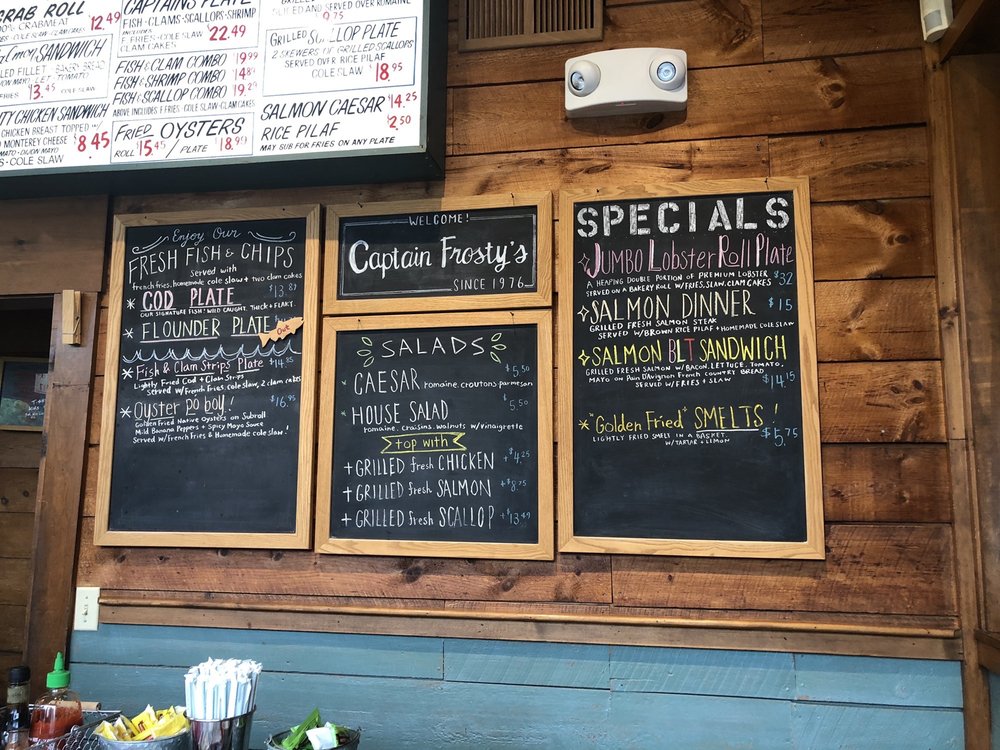 CRAB ROLL
100% CRABMEAT
12.49
SANDWICH
FILLET - BAKERY BREAD
MAYO - LET - TOMATO
13.45 COLE SLAW
CHICKEN SANDWICH
CHICKEN BREAST TOPPED W/
MONTEREY CHEESE
TOMATO - DIJON MAYO
8.45
COLE SLAW
CAPTAINS PLATE
FISH-CLAMS-SCALLOPS-SHRIMP
INCLUDES
F. FRIES-COLE SLAW
CLAM CAKES
22.49
FISH & CLAM COMBO 19.99
FISH & SHRIMP COMBO
FISH & SCALLOP COMBO
ABOVE INCLUDES F. FRIES - COLE SLAW-CLAM CAKES
FRIED OYSTERS
ROLL 15.45 / PLATE 18.99
AND SERVED OVER ROMAINE
9.75
GRILLED SCALLOP PLATE
2 SKEWERS OF GRILLED SCALLOPS
SERVED OVER RICE PILAF
COLE SLAW 18.95
SALMON CAESAR 14.25
RICE PILAF 2.50
MAY SUB FOR FRIES ON ANY PLATE
Enjoy Our
FRESH FISH & CHIPS
Served with
french fries, homemade cole slaw + two clam cakes
* COD PLATE $13.89
OUR SIGNATURE FISH! WILD CAUGHT, THICK + FLAKY.
* FLOUNDER PLATE
Out
* Fish & Clam Strips Plate $14.85
Lightly Fried Cod + Clam Strips
served w/ French Fries, cole slaw, 2 clam cakes
* Oyster po boy! $16.95
Golden Fried Native Oysters on Subroll
Mild Banana Peppers + Spicy Mayo Sauce
Served w/ French Fries & Homemade cole slaw!
WELCOME!
Captain Frosty's
SINCE 1976
SALADS
CAESAR $5.50
romaine, croutons, parmesan
* HOUSE SALAD $5.50
romaine, craisins, walnuts w/ vinaigrette
top with
+ GRILLED fresh CHICKEN +$4.25
+ GRILLED fresh SALMON +$8.75
+ GRILLED fresh SCALLOP +$13.49
SPECIALS
JUMBO Lobster Roll Plate
A HEAPING DOUBLE PORTION OF PREMIUM LOBSTER
SERVED ON A BAKERY ROLL W/ FRIES, SLAW, CLAM CAKES $32
SALMON DINNER $15
GRILLED FRESH SALMON STEAK
SERVED W/ BROWN RICE PILAF + HOMEMADE COLE SLAW
SALMON BLT SANDWICH
GRILLED FRESH SALMON W/ BACON, LETTUCE, TOMATO,
MAYO on Pain D'Avignon French COUNTRY BREAD,
SERVED W/ FRIES + SLAW $14.15
* "Golden Fried" SMELTS!
LIGHTLY FRIED SMELT IN A BASKET
W/ TARTAR + LEMON $5.75